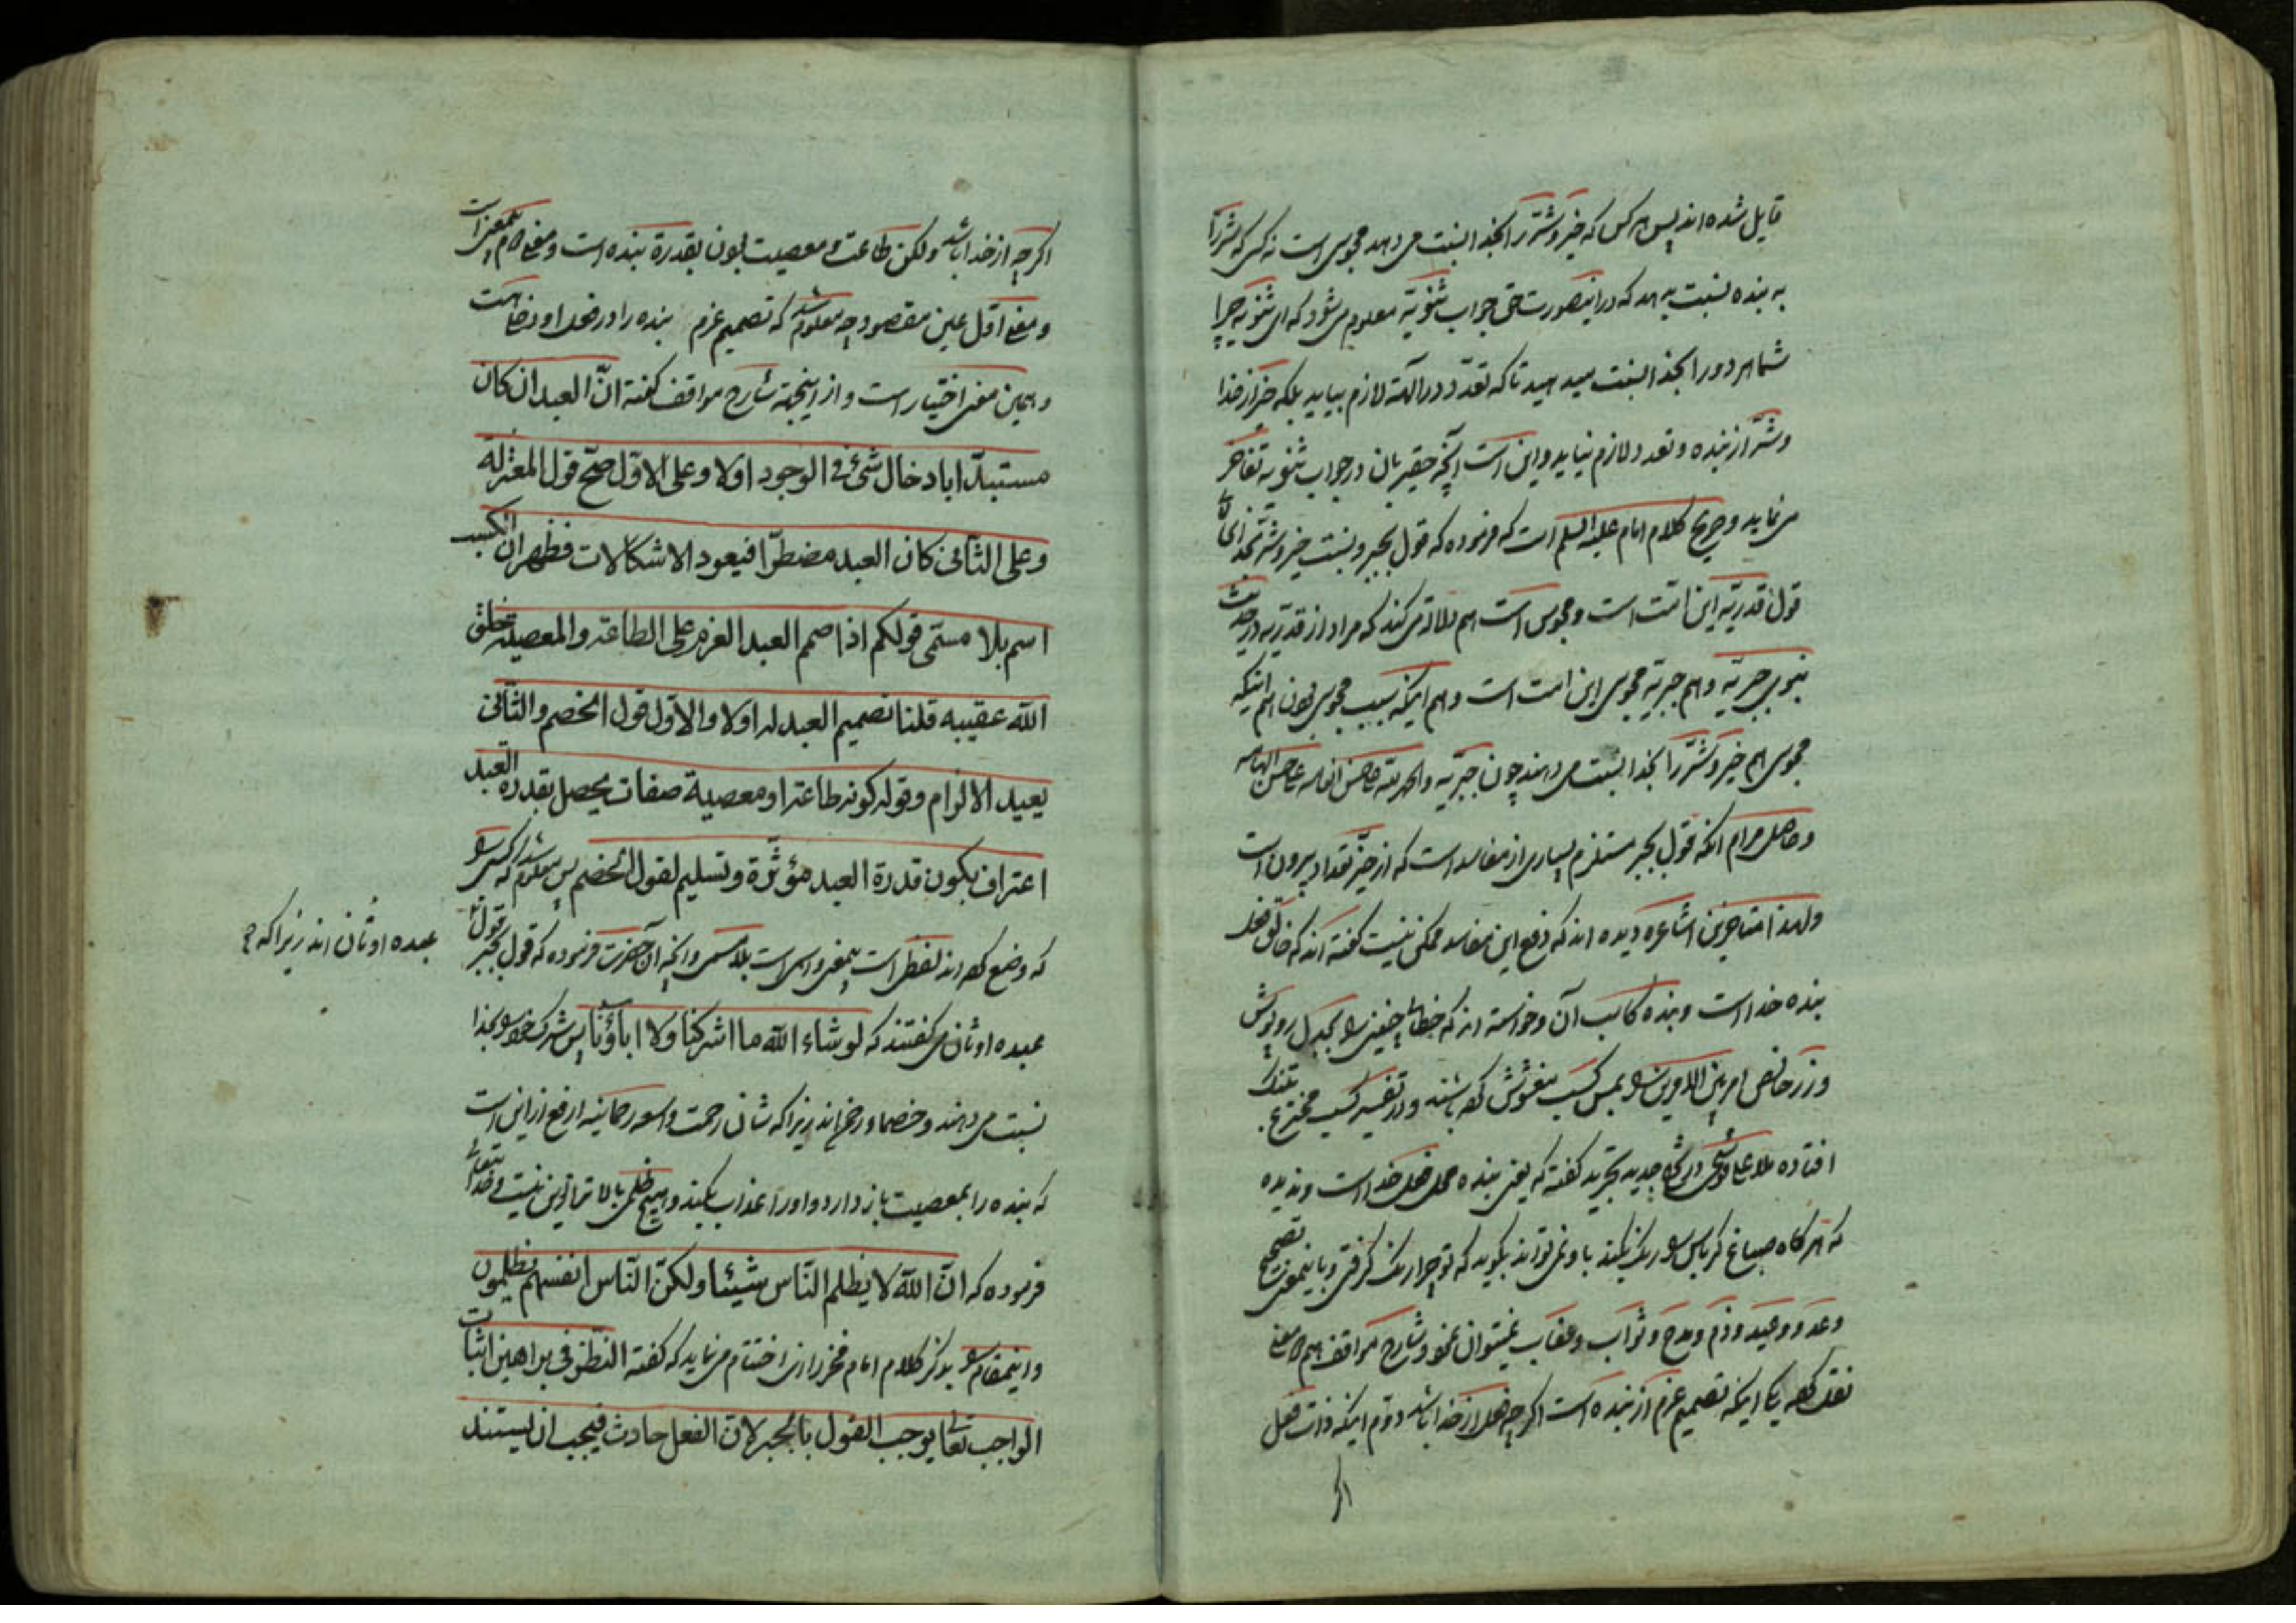 قایل شده اند پس هر کس که خیر و شرّ را بخدا نسبت می دهد مجوسی است نه کسی که شرّ را
به بنده نسبت بدهد که در اینصورت حق جواب ثنویّه معلوم می شود که ای ثنویه چرا
شما هر دو را بخدا نسبت میدهید تا که تعدّد در آلهة لازم بیاید بلکه خیر از خدا
و شرّ از بنده و تعدد لازم نیاید و این است آنچه حقیر بان در جواب ثنویه تفاخر
می نماید و صریح کلام امام علیه السلم است که فرموده که قول بجبر و نسبت خیر و شرّ بخدا
قول قدریّه این امّت است و مجوس است هم دلالة می کند که مراد از قدریّه در حدیث
نبوی جبریّه و هم جبریّه مجوس این امت است و هم اینکه سبب مجوسی بودن هم اینکه
مجوس هم خیر و شرّ را بخدا نسبت می دهند چون جبریّه و الحمد لله
و حاصل مرام انکه قول بجبر مستلزم بسیاری از مفاسد است که از حیّز تعداد بیرون است
ولهذا متاخرین اشاعره دیده اند که دفع این مفاسد ممکن نیست گفته اند که خالق فعل
بنده خدا است و بنده کاسب آن و خواسته اند که
و زر خالص امر بین الامرین بمس کسب مغشوش کرده باشند و در تفسیر کسب مخترع
افتاده ملا علی قوشجی در شرح جدید تجرید گفته که یعنی بنده محل فعل خدا است و ندیده
که هر گاه صباغ کرباس را رنگ بکند باو نمی تواند بگوید که تو چرا رنگ گرفتی و باینمعنی تصحیح
وعد و وعید و ذم و مدح و ثواب و عقاب نمیتوان نمود و شارح مواقف هم دو معنی
نقل کرده یکی اینکه تصمیم عزم از بنده است اگر چه فعل از خدا باشد دوّم اینکه ذات فعل
اگر
اگر چه از خدا باشد ولکن طاعت و معصیت بودن بقدرة بنده است و معنی دوم بیمعنی است
و معنی اوّل عین مقصود چه معلوم شد که تصمیم عزم بنده را در فعل او
و همین معنی اختیار است و از اینجهة شارح مواقف گفته انّ العبد ان کان
مستبدّا بادخال شیء فی الوجود اولا و علی الاوّل صحّ قول المعتزلة
و علی الثّانی کان العبد مضطرّا فیعود الاشکالات فظهر ان الکسب
اسم بلا مسمّی قولکم اذا صمم العبد العزم علی الطاعة والمعصیة یخلق
اللّه عقیبه قلنا تصمیم العبد له اولا والاوّل قول الخصم والثّانی
یعید الالزام و قوله کونه طاعة او معصیة صفات یحصل بقدرة العبد
اعتراف بکون قدرة العبد مؤثّرة و تسلیم لقول الخصم پس معلوم شد که کسب
که وضع کرده اند لفظی است بیمعنی و اسمی است بلا مسمی و انچه آن حضرت فرموده که قول بجبر قول
عبده اوثان اند زیرا که
عبده اوثان می گفتند که لو شاء اللّه ما اشرکنا ولا اباؤنا پس شرک خود بخدا
نسبت می دهند و خصماء رحمن اند زیرا که شان رحمت واسعه رحمانیه ارفع از این است
که بنده را بمعصیت باز دارد و او را عذاب بکند و هیچ ظلمی بالاتر از این نیست و خدا یتعالی
فرموده که انّ اللّه لا یظلم النّاس شیئا ولکنّ النّاس انفسهم یظلمون
و اینمقام را بذکر کلام امام فخر رازی اختتام می نماید که گفته النظر فی براهین اثبات
الواجب تعالی یوجب القول بالجبر لانّ الفعل حادث فیجب ان یستند